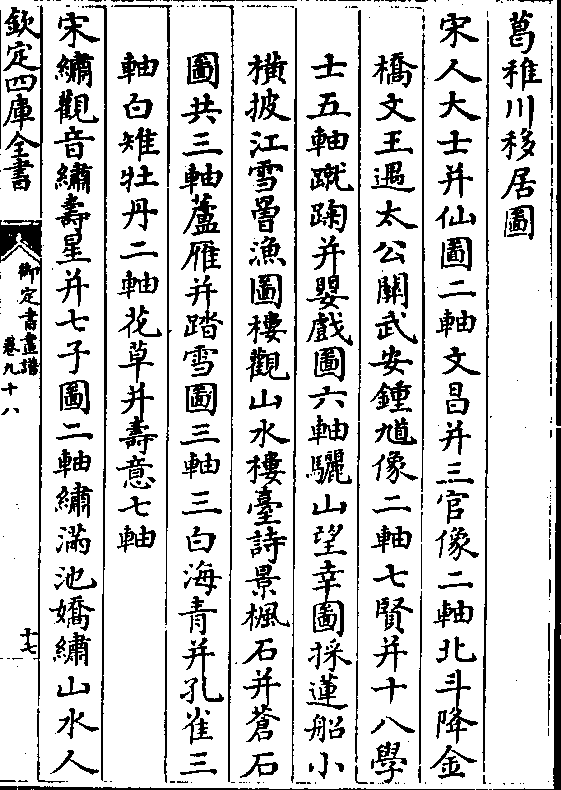 葛稚川移居圖
宋人大士并仙圖二軸文昌并三官像二軸北斗降金
橋文王遇太公關武安鍾馗像二軸七賢并十八學
士五軸蹴踘并嬰戲圖六軸驪山望幸圖採蓮船小
橫披江雪罾漁圖樓觀山水樓臺詩景楓石并蒼石
圖共三軸蘆雁并踏雪圖三軸三白海青并孔雀三
軸白雉牡丹二軸花草并壽意七軸
宋繡觀音繡壽星并七子圖二軸繡滿池嬌繡山水人
欽定四庫全書
御定書畫譜
卷九十八
十七